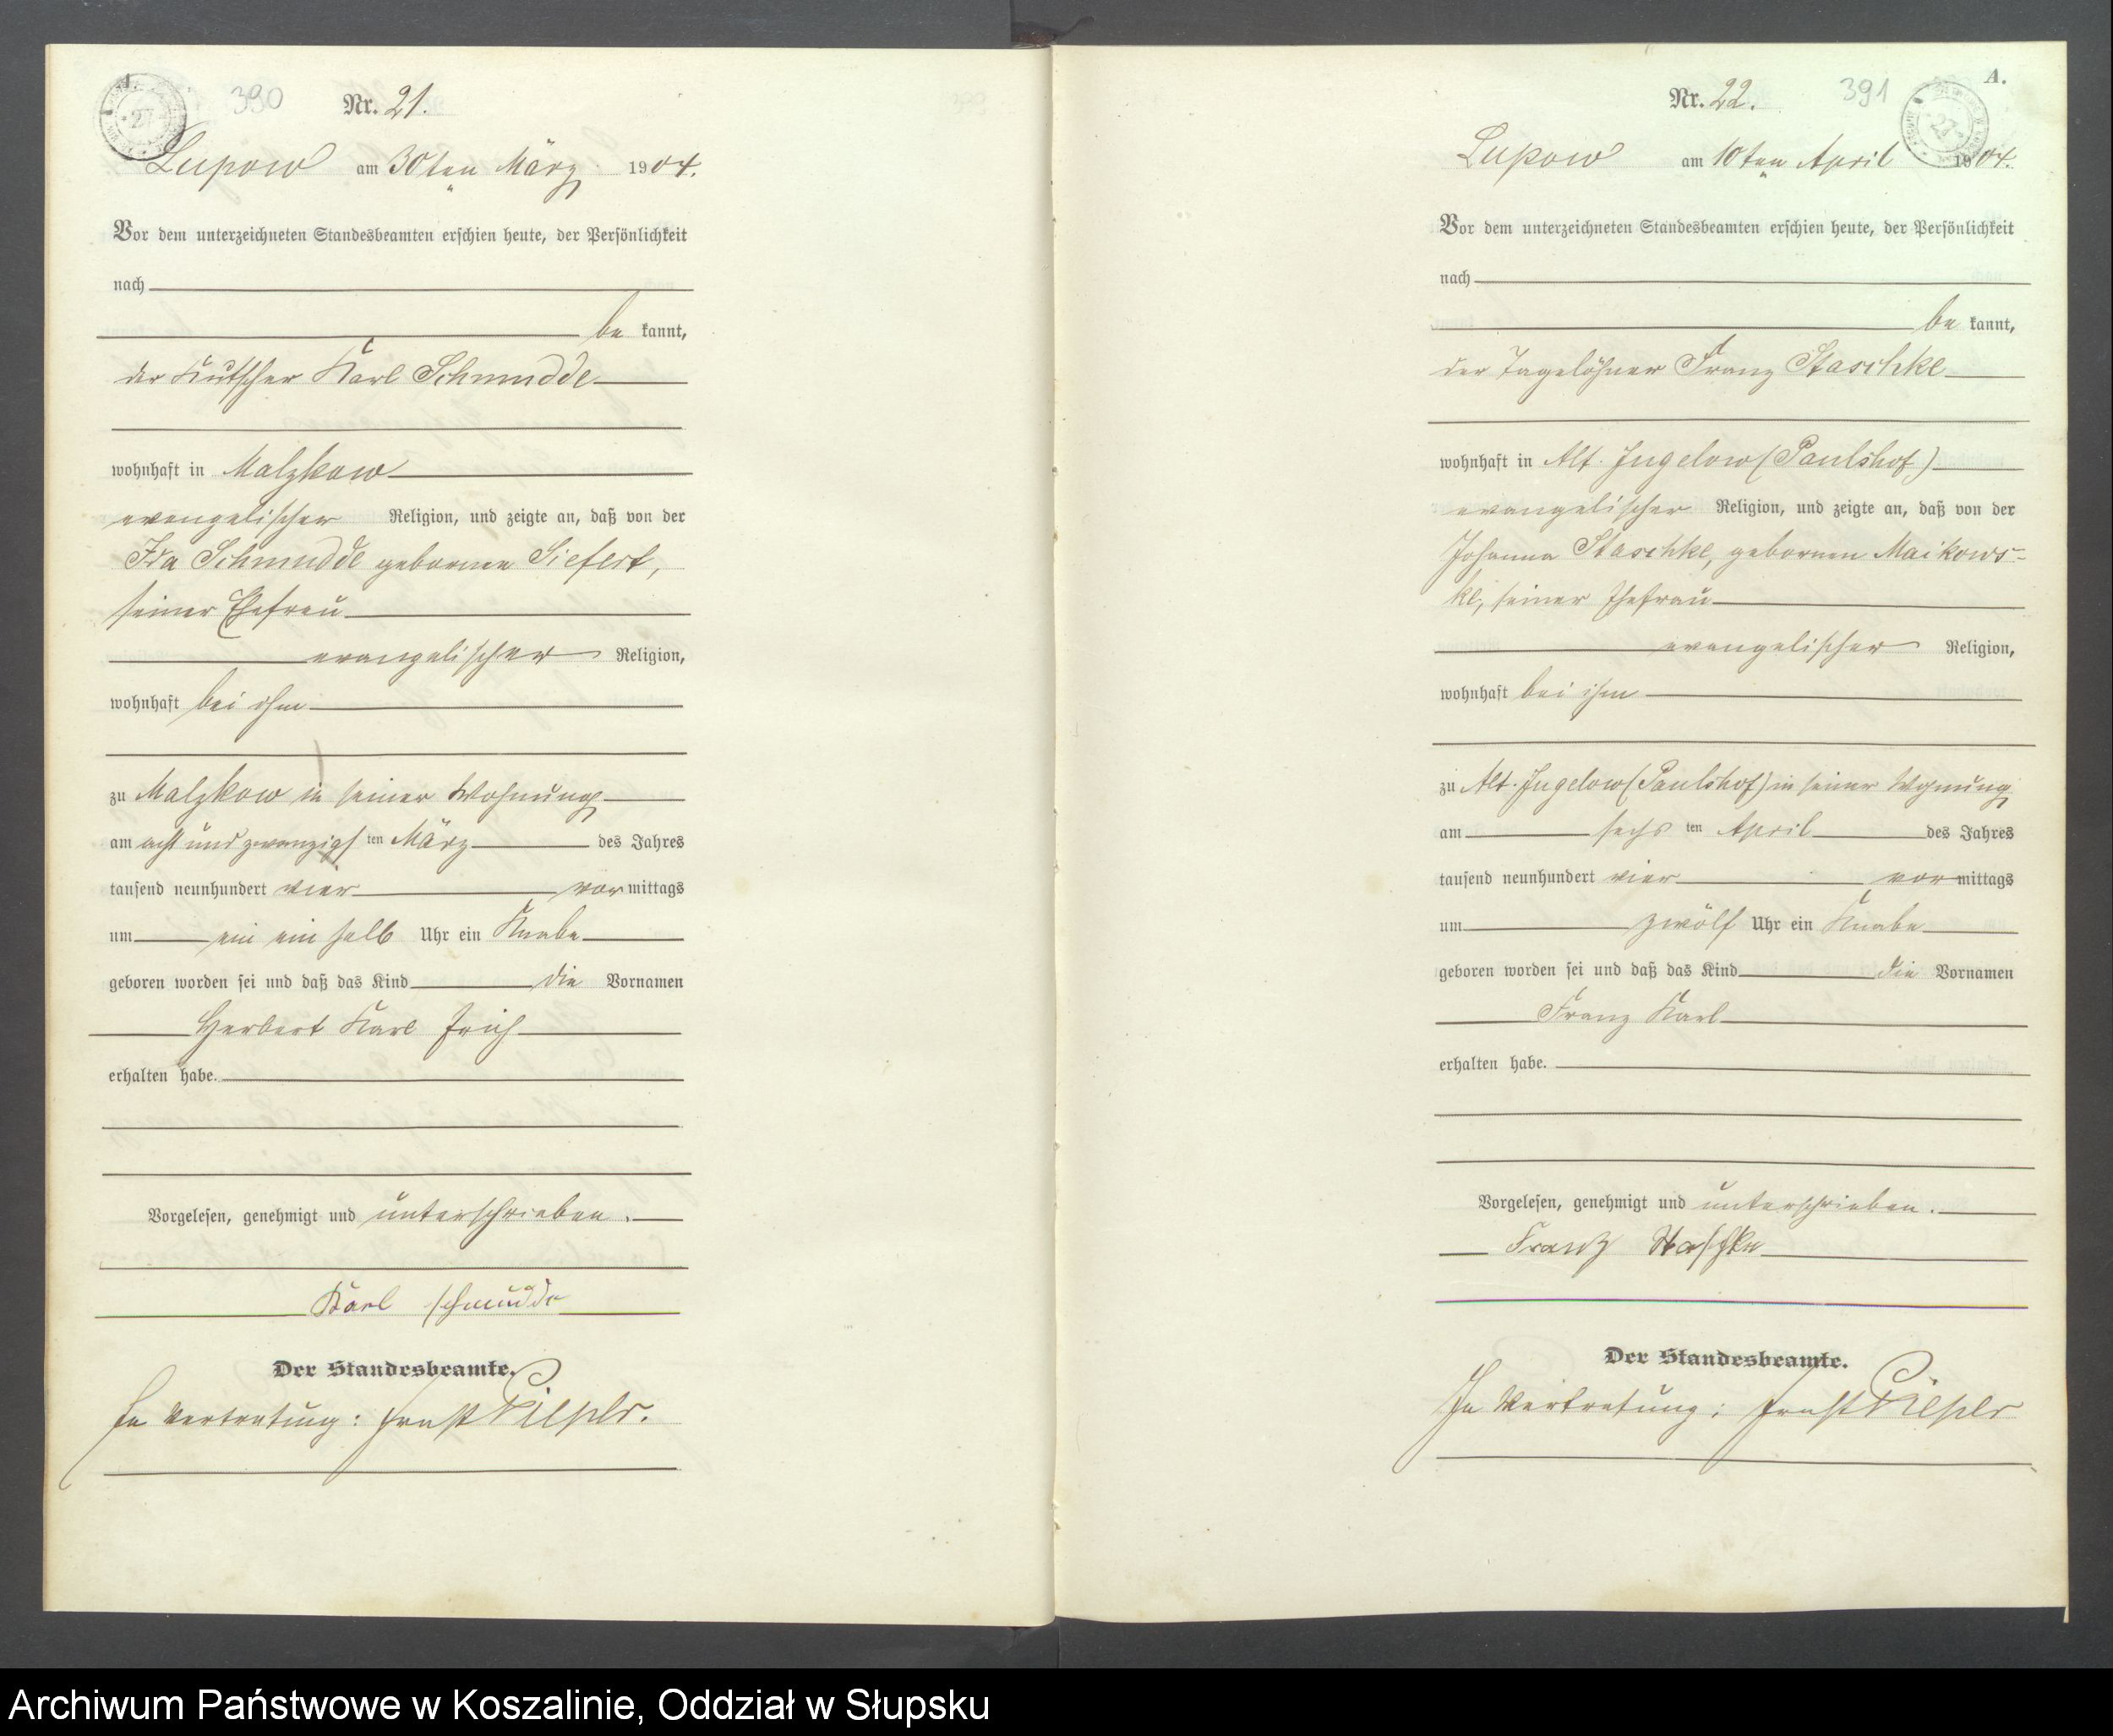 A.
390
Nr. 21.
27
Lupow am 30ten März 1904.
Vor dem unterzeichneten Standesbeamten erschien heute, der Persönlichkeit
nach
be kannt,
der Kutscher Karl Schmudde
wohnhaft in Malzkow
evangelischer Religion, und zeigte an, daß von der
Ida Schmudde geborenen Siefert,
seiner Ehefrau
evangelischer Religion,
wohnhaft bei ihm
zu Malzkow in seiner Wohnung
am acht und zwanzigs ten März des Jahres
tausend neunhundert vier vor mittags
um ein ein halb Uhr ein Knabe
geboren worden sei und daß das Kind die Vornamen
Herbert Karl Erich
erhalten habe.
Vorgelesen, genehmigt und unterschrieben.
Karl Schmudde
Der Standesbeamte.
In Vertretung: Ernst
A.
391
Nr. 22.
27
Lupow am 10ten April 1904.
Vor dem unterzeichneten Standesbeamten erschien heute, der Persönlichkeit
nach
be kannt,
der Tagelöhner Franz Staschke
wohnhaft in Alt. Jugelow (Paulshof)
evangelischer Religion, und zeigte an, daß von der
Johanna Staschke, geborenen Maikows-
ki, seiner Ehefrau
evangelischer Religion,
wohnhaft bei ihm
zu Alt. Jugelow (Paulshof) in seiner Wohnung
am sechs ten April des Jahres
tausend neunhundert vier vor mittags
um zwölf Uhr ein Knabe
geboren worden sei und daß das Kind die Vornamen
Franz Karl
erhalten habe.
Vorgelesen, genehmigt und unterschrieben.
Franz Staschke
Der Standesbeamte.
In Vertretung: Ernst
Archiwum Państwowe w Koszalinie, Oddział w Słupsku